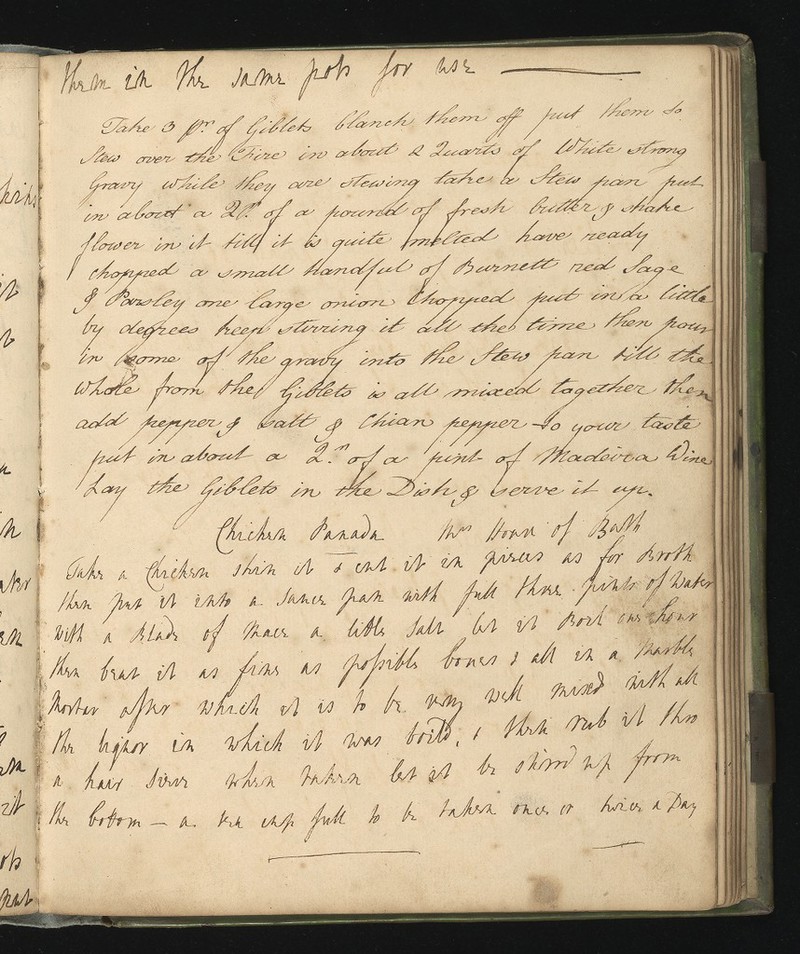 them in the same pots for use
Take 3 pr. of Giblets blanch them off put them to
stew over the Fire in about 2 Quarts of White strong
Gravy while they are stewing take a Stew pan put
in about a 2r. of a pound of fresh butter & shake
flower in it till it is quite melted have ready
chopped a small handful of Burnett red Sage
& Parsley one large onion Chopped put in a little
by degrees keep stirring it all the time then pour
in some of the gravy into the Stew pan till the
whole from the Giblets is all mixed together then
add pepper & salt & Chian pepper to your taste
put in about a 2.r of a pint of Madeira Wine
Lay the Giblets in the Dish & serve it up.
Chicken Panada Mrs of Bath
Take a Chicken skin it & cut it in pieces as for Broth
then put it into a sauce pan with full three pints of Water
with a Blade of Mace a little Salt let it Boil one hour
then beat it as fine as possible bones & all in a Marble
Mortar after which it is to be very well mixed with all
the liquor in which it was boil'd, & then rub it thro
a hair sieve when taken let it be stirrd up from
the bottom — a tea cup full to be taken once or twice a Day